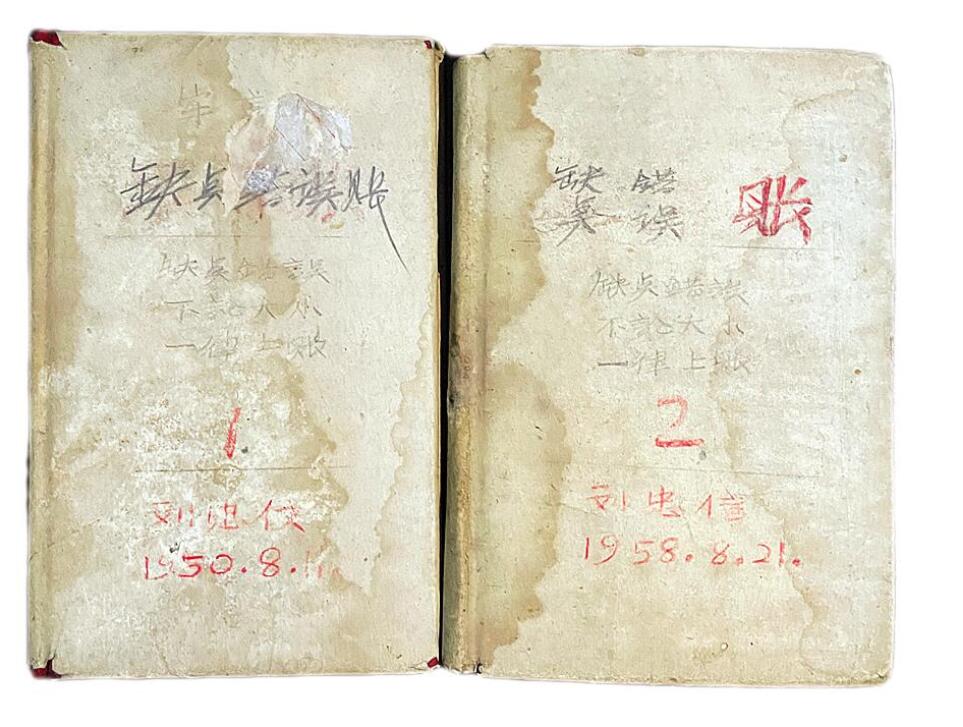 缺点错误账
缺点錯誤
不論大小
一律上账
1
刘忠信
1950.8.11.
缺 錯
点 误 账
缺点錯誤
不論大小
一律上账
2
刘忠信
1958.8.21.